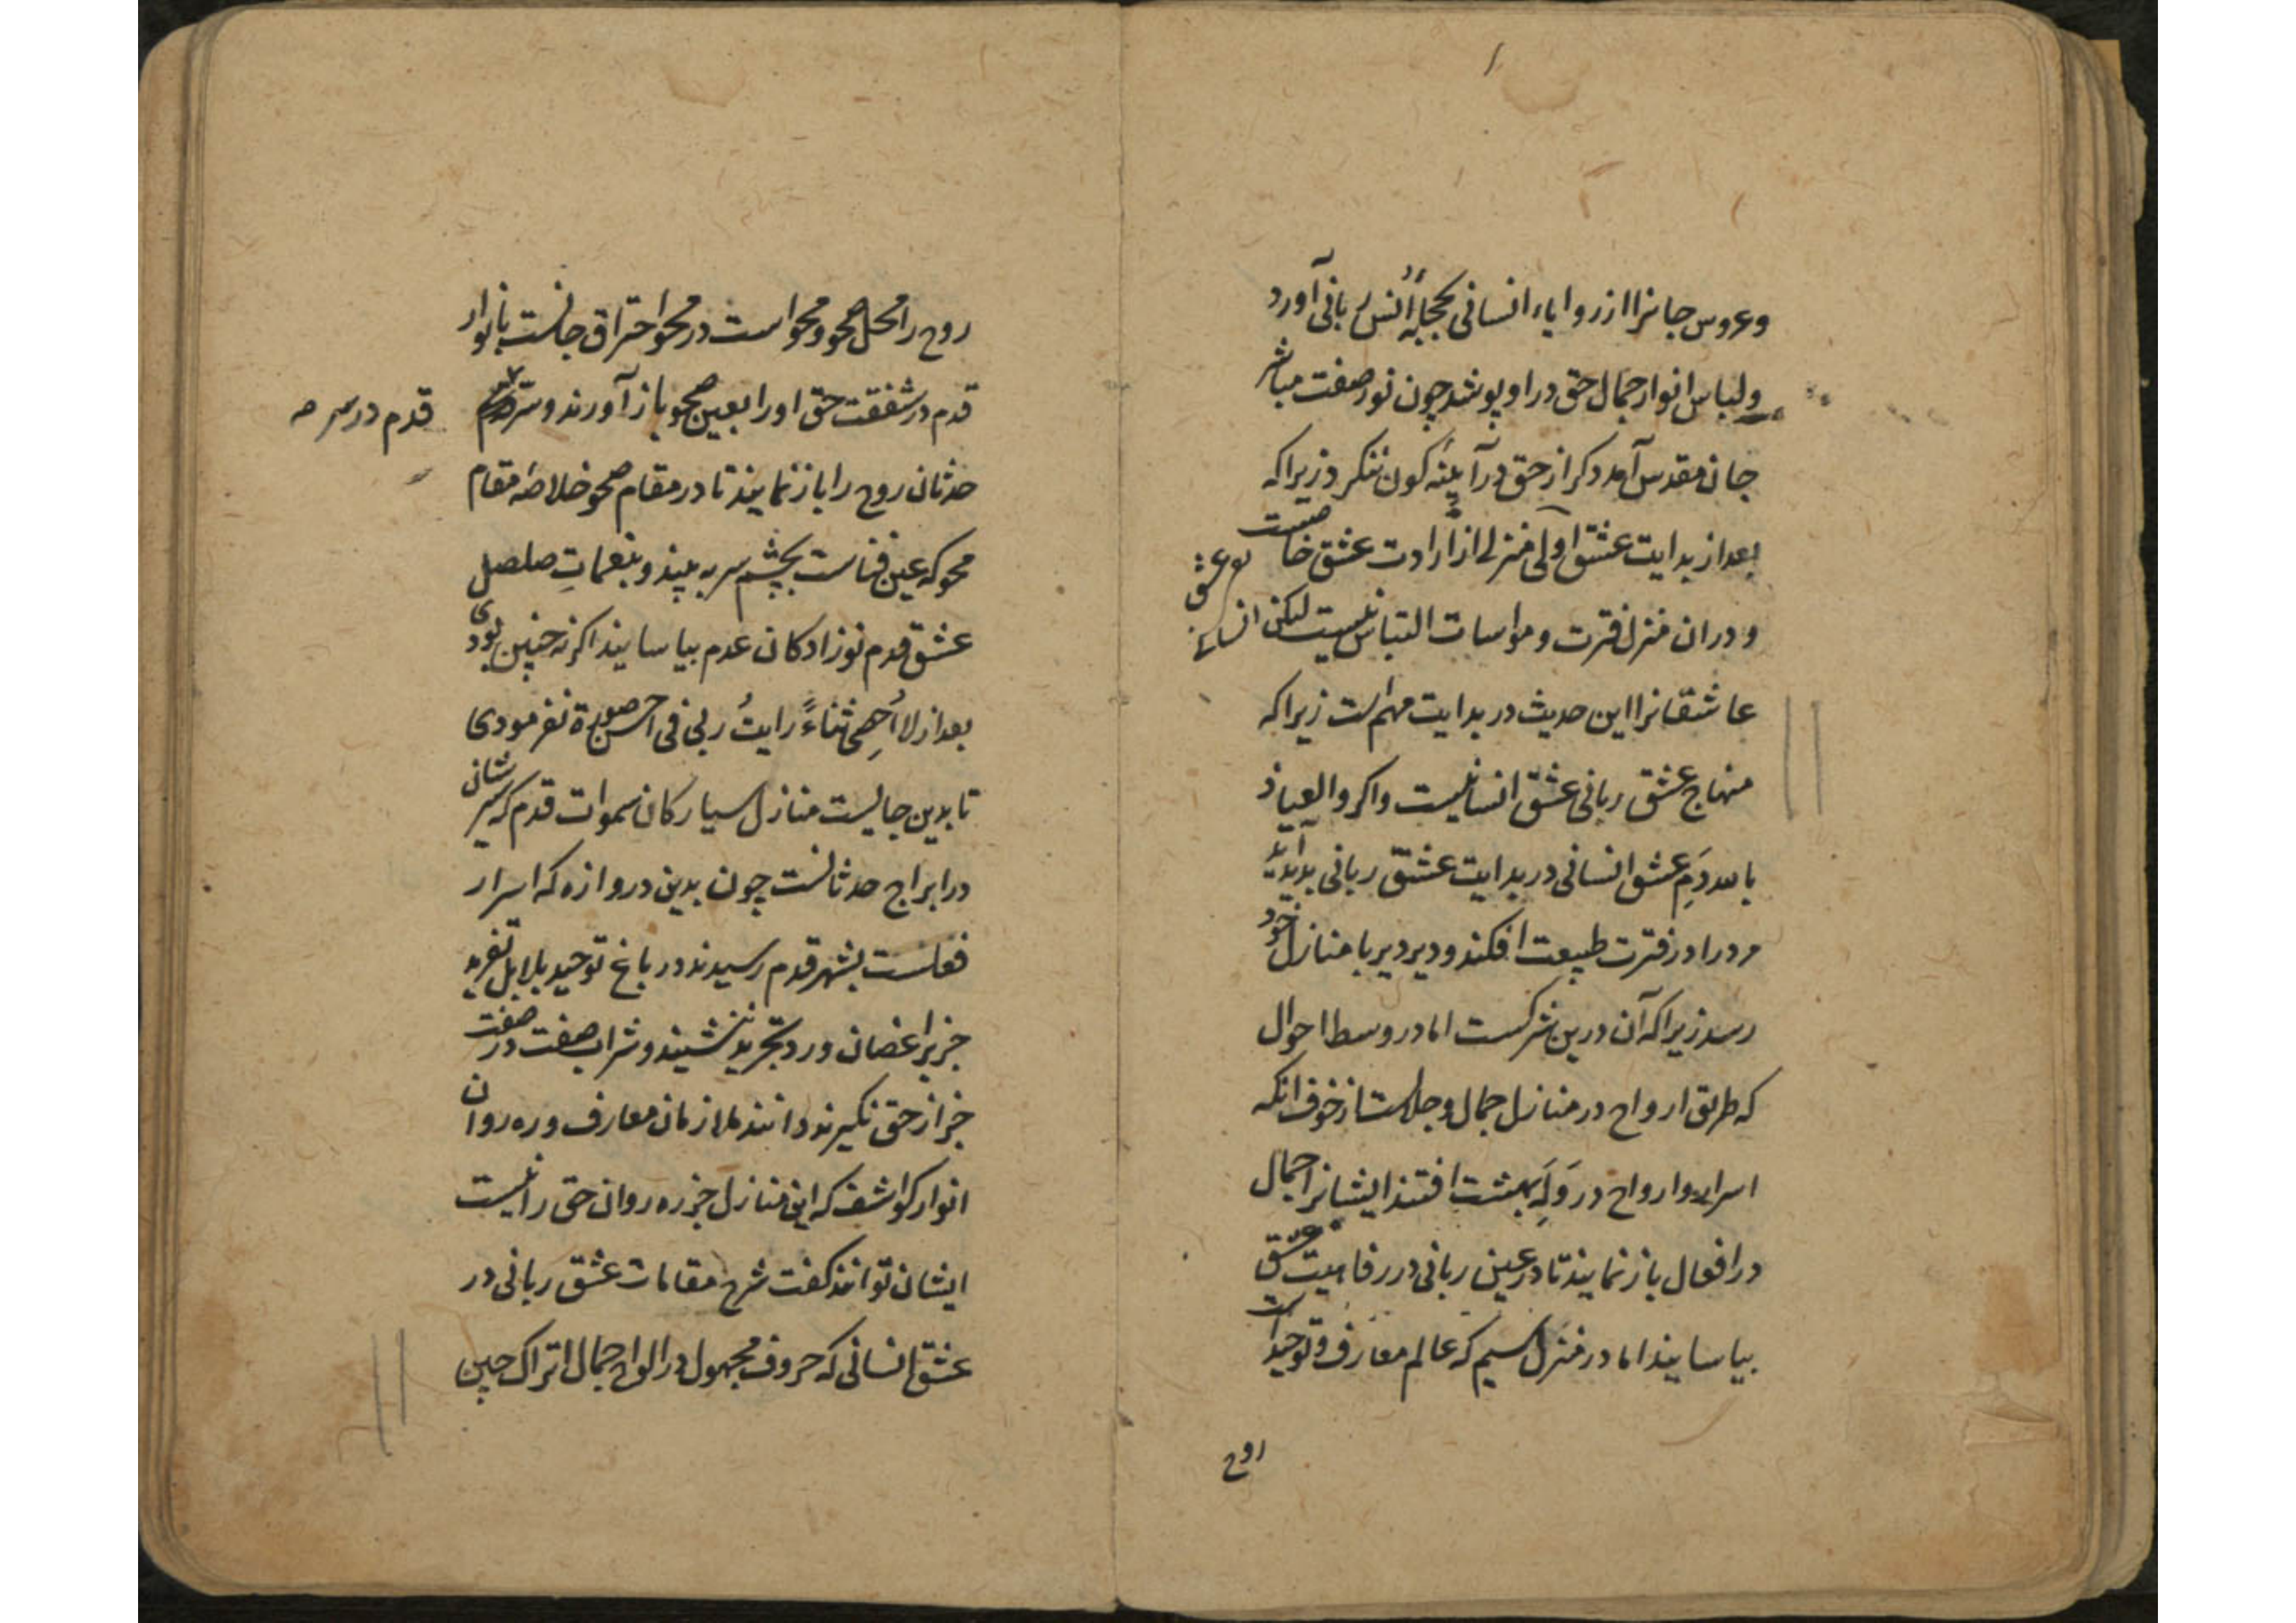 وعروس جانرا از زوایاء انسانی بحجلهٔ اُنس ربانی آورد
ولباس انوار جمال حق در او پوشد چون نور صفت مباشر
جان مقدس آمد دکر از حق در آینهٔ کون ننکرد زیرا که
بعد از بدایت عشق اولی منزلی از ارادت عشق خاصست
ودران منزل فترت و مواسات التباس نیست لیکن
عاشقانرا این حدیث در بدایت مهم است زیرا که
منهاج عشق ربانی عشق انسانیست واکر والعیاذ
بالله دَمِ عشق انسانی در بدایت عشق ربانی بدید آید
مرد را در فترت طبیعت افکند و دیر دیر با منازل خود
رسد زیرا که آن درین شرکست اما در وسط احوال
که طریق ارواح در منازل جمال و جلالست از خوف انکه
اسرار وارواح در وَلَه بهشت افتند ایشانرا جمال
در افعال باز نمایند تا در عین ربانی در رفاهیت عشق
بیاسایند اما در منزل سیم که عالم معارف و توحید است
روح
روح را محل صحو و محو است در محو احتراق جانست بانوار
قدم در شفقت حق اورا بعین صحو باز آورند و سر
قدم در سر
حدثان روح را باز نمایند تا در مقام صحو خلاصهٔ مقام
محو که عین فناست بچشم سر به بیند و بنغمات صلصل
عشق قدم نوزادکان عدم بیاسایند اکر نه چنین بودی
بعد از لا اُحصِی ثناءً رایتُ ربی فی احسن صورة نفرمودی
تا بدین جایست منازل سیارکان سموات قدم که سیرشان
در ابراج حدثانست چون بدین دروازه که اسرار
فعلست بشهر قدم رسیدند در باغ توحید بلابل تفرید
جز بر اغصان ورد تجرید ننشیند و شراب صفت در صفت
جز از حق نکیرند دانند ملازمان معارف و ره روان
انوار کواشف که این منازل جز ره روان حق را نیست
ایشان توانند کفت شرح مقامات عشق ربانی در
عشق انسانی که حروف مجهول در الواح جمال اتراک چین